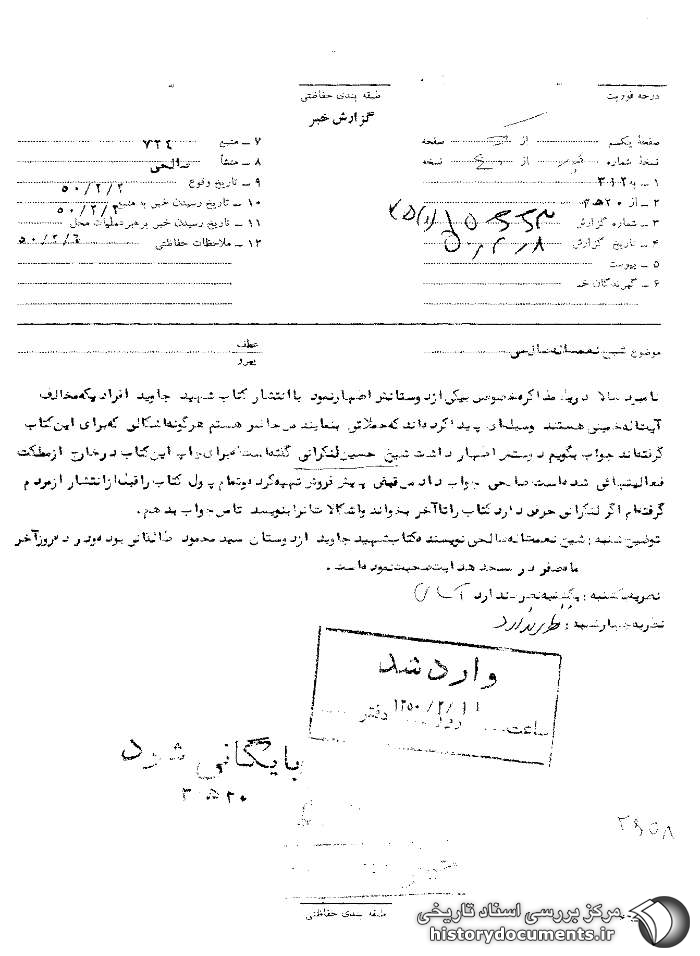 درجه فوریت
طبقه بندی حفاظتی
گزارش خبر
صفحهٔ یکم از صفحه
نسخهٔ شماره از نسخه
۱ ـ به ۳۱۲
۲ ـ از ۲۰ ه ۳
۳ ـ شماره گزارش
۴ ـ تاریخ گزارش ۵۰٫۲٫۸
۵ ـ پیوست
۶ ـ گیرندگان خبر
۷ ـ منبع ۷۲۴
۸ ـ منشأ صالحی
۹ ـ تاریخ وقوع ۵۰/۲/۲
۱۰ ـ تاریخ رسیدن خبر به منبع ۵۰/۲/۲
۱۱ ـ تاریخ رسیدن خبر به رهبر عملیات محل ۵۰/۲/۶
۱۲ ـ ملاحظات حفاظتی
موضوع شیخ نعمت اله صالحی
عطف
پیرو
نامبرده بالا در یک مذاکره خصوصی بیکی از دوستانش اظهار نمود با انتشار کتاب شهید جاوید افرادیکه مخالف
آیت اله خمینی هستند وسیله ای پیدا کرده اند که حملاتی بنمایند من حاضر هستم هرگونه اشکالی که برای این کتاب
گرفته اند جواب بگویم دوستش اظهار داشت شیخ حسین لنکرانی گفته است که برای چاپ این کتاب در خارج از مملکت
فعالیتهائی شده است صالحی جواب داد من قبض پیش فروش تهیه کرده و تمام پول کتاب را قبل از انتشار از مردم
گرفته ام اگر لنکرانی حرفی دارد کتاب را تا آخر بخواند و اشکالات آنرا بنویسد تا من جواب بدهم.
توضیح شنبه : شیخ نعمت اله صالحی نویسنده کتاب شهید جاوید از دوستان سید محمود طالقانی بوده و در دو روز آخر
ماه صفر در مسجد هدایت صحبت نموده است.
نظریه یکشنبه : یکشنبه نظری ندارد
نظریه چهارشنبه : نظری ندارد
وارد شد
ساعت روز ۱۳۵۰/۲/۱۱ دفتر
بایگانی شود
۲۰ ه ۳
طبقه بندی حفاظتی
مرکز بررسی اسناد تاریخی
historydocuments.ir